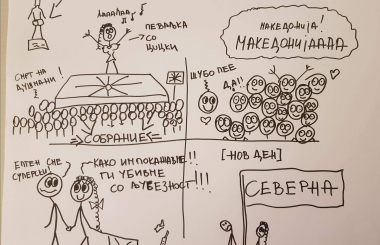 ЛАЛАЛАА
ПЕВАЉКА
СО
ЦИЦКИ
СМРТ НА
ДУШМАНИ!
СОБРАНИЕ
МАКЕДОНИЈА!
МАКЕДОНИЈАААА
ШУБО ПЕЕ
ДА!!
ЕПТЕН СМЕ
СУПЕРСКИ
КАКО ИМ ПОКАЖАВМЕ!!
ГИ УБИВМЕ
СО
[-НОВ ДЕН]
СЕВЕРНА